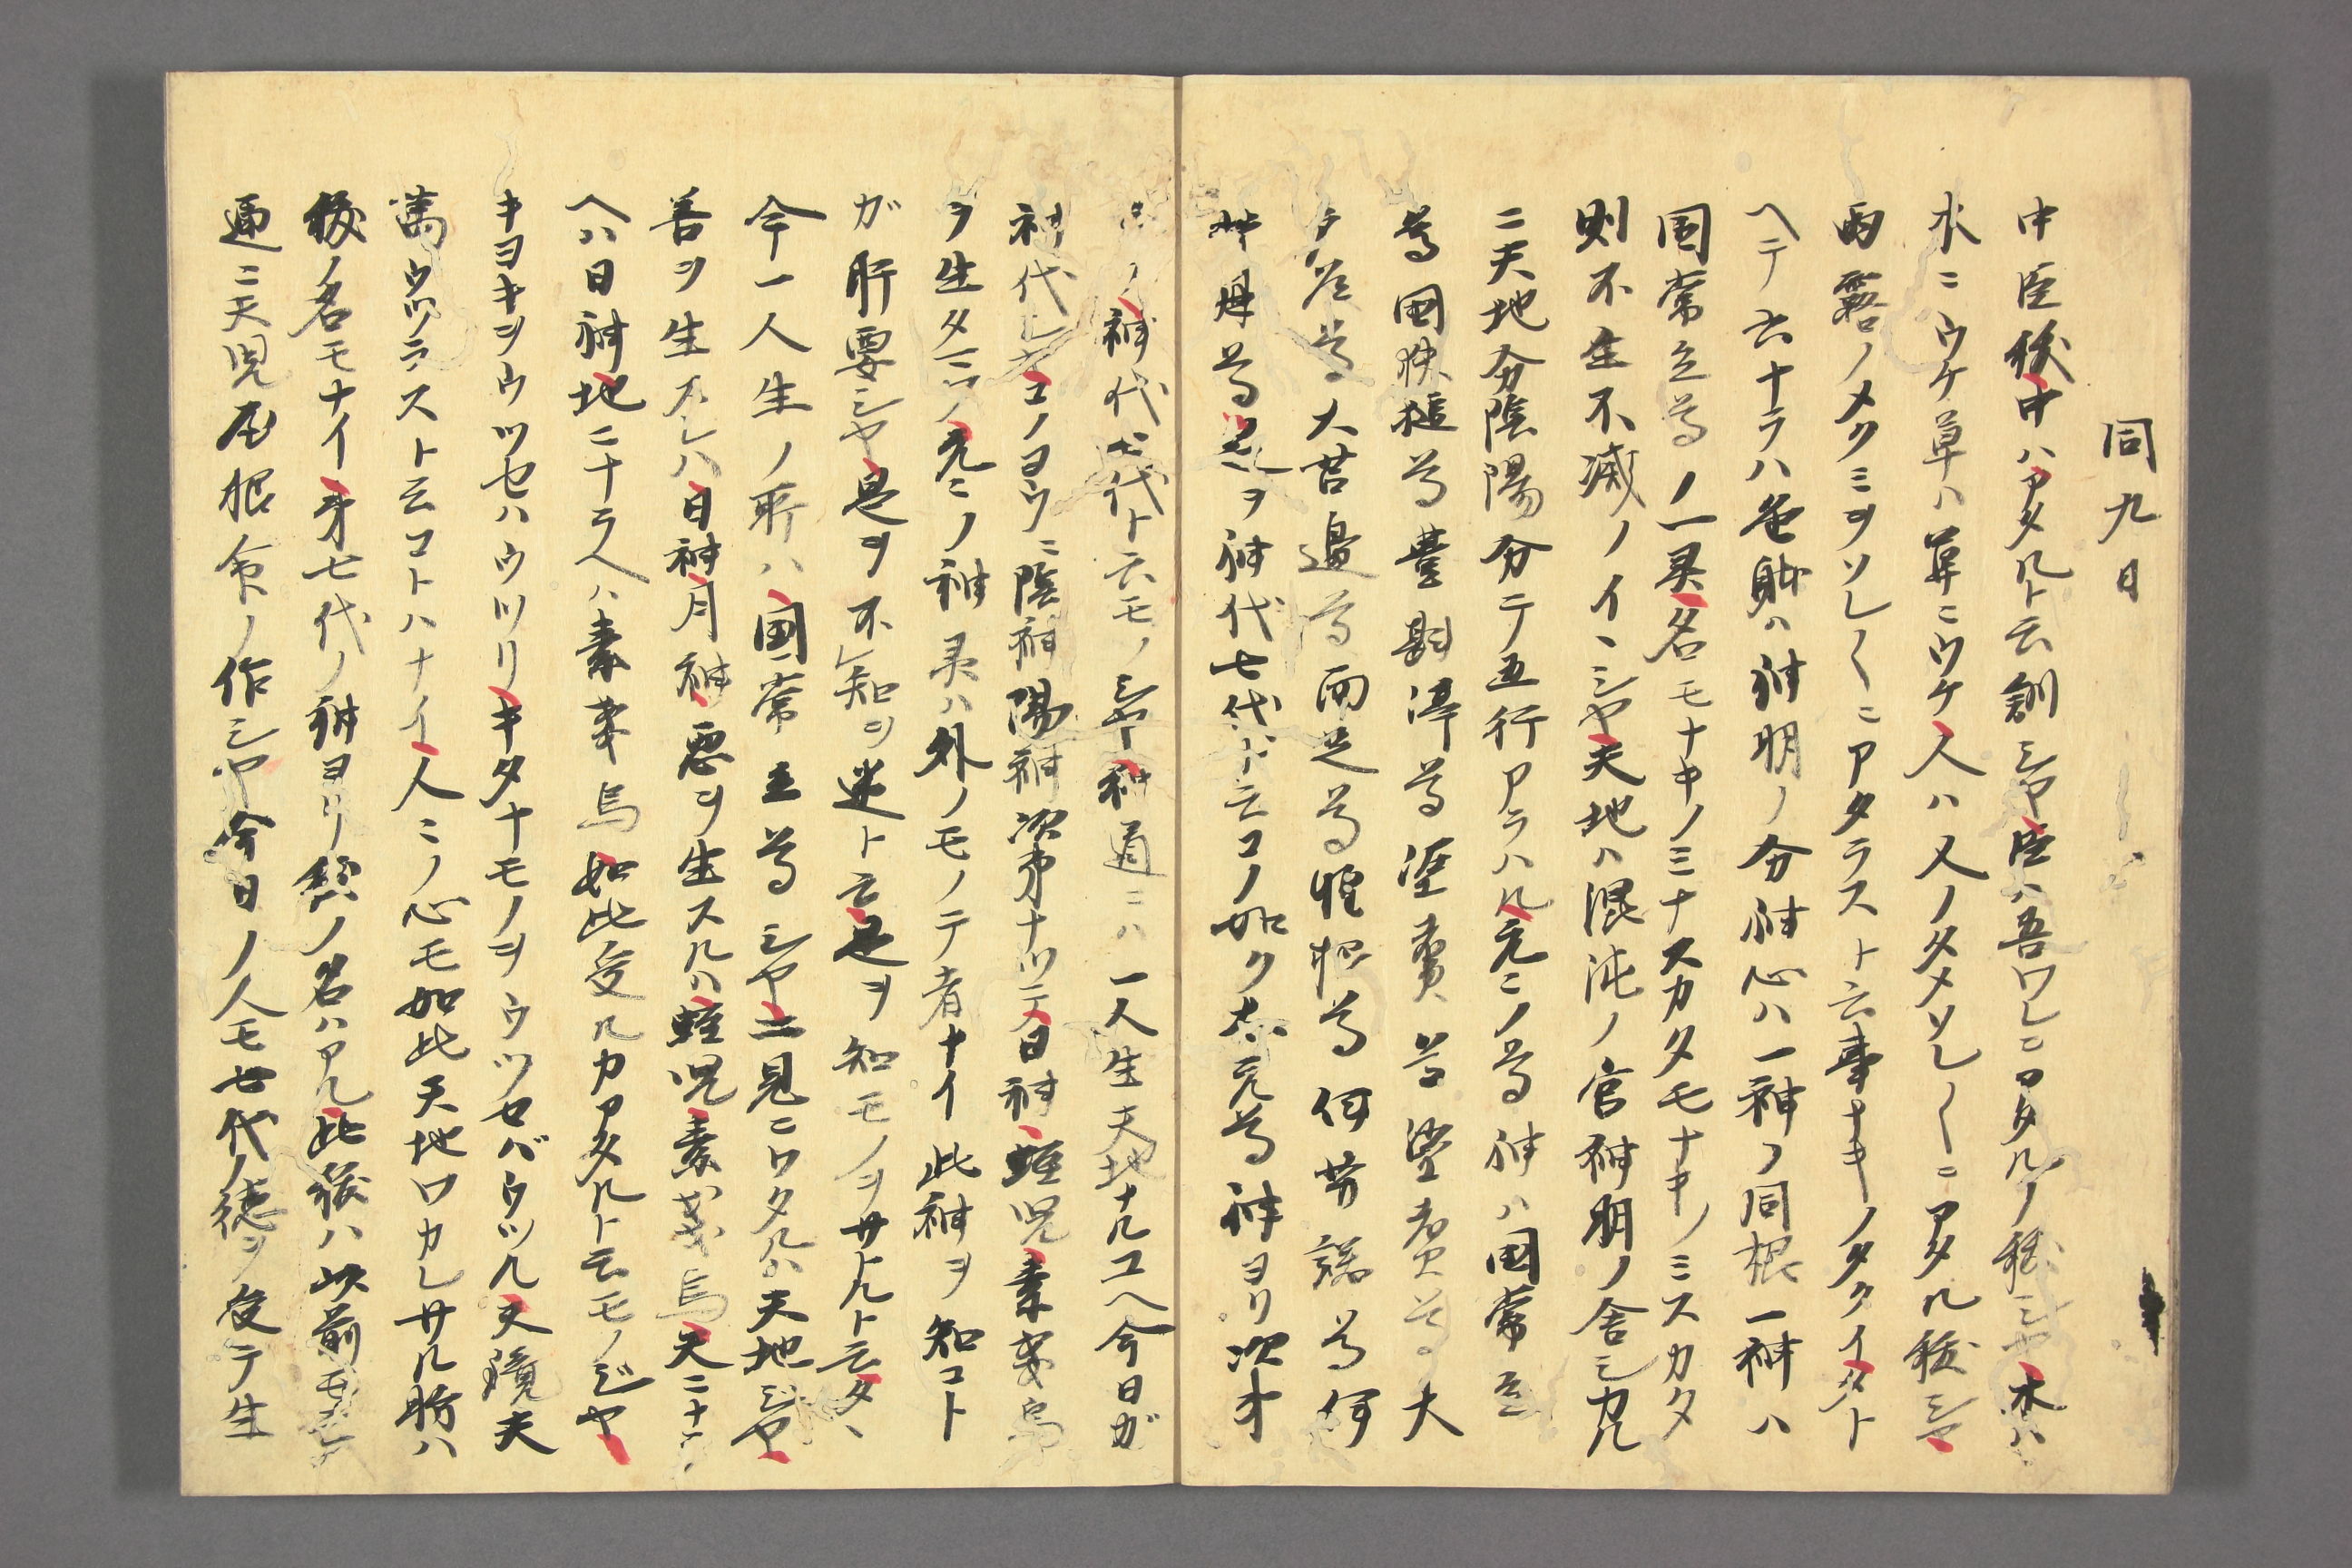 同九日
中臣祓中ハアタルト云訓シヤ臣ハ吾ワレニワタルノ祓シヤ木ハ
水ニウケ草ハ草ニウケ人ハ人ノタメソレ〱ニアタル祓シヤ
雨露ノメクミヲソレ〱ニアタラスト云事ナキノタクイタト
ヘテ云ナラハ是則ハ神明ノ分神心ハ一神ノ同根一神ハ
国常立尊ノ一灵名モナキノミナスカタモナキノミスカタ
則不生不滅ノイヽシヤ天地ハ混沌ノ官神明ノ舎シカル
ニ天地分陰陽分テ五行アラハル元ニノ尊神ハ国常立
尊國狭槌尊豊斟渟尊埿土煑尊沙土煑尊大
戸道尊大苫邊尊面足尊惶根尊伊弉諾尊伊
弉冊尊是ヲ神代七代ト云コノ如ク太元尊神ヨリ次才
ノ神代七代ト云モノシヤ神道ニハ一人生天地ナルユヘ今日ガ
神代シヤコノヨウニ陰神陽神次第ナツテ日神蛭児素戔烏
ヲ生タマフ元ニノ神灵ハ外ノモノテ者ナイ此神ヲ知コト
ガ肝要シヤ是ヲ不知ヲ迷ト云是ヲ知モノヲサトルト云タヽ
今一人生ノ所ハ国常立尊シヤ二見ニワタルハ天地ジヤ
善ヲ生スレハ日神月神悪ヲ生スルハ蛭児素戔烏天ニナラ
ヘハ日神地ニナラヘハ素戔烏如此受ルカアタルト云モノジヤ
キヨキヲウツセハウツリキタナモノヲウツセバウツル天鏡夫
萬ウツラスト云コトハナイ人ニノ心モ如此天地ワカレサル時ハ
祓ノ名モナイ才七代ノ神ヨリ祓ノ名ハアル此祓ハ以前モ
通ニ天児屋根命ノ作シヤ今日ノ人モ七代ノ徳ヲ受テ生